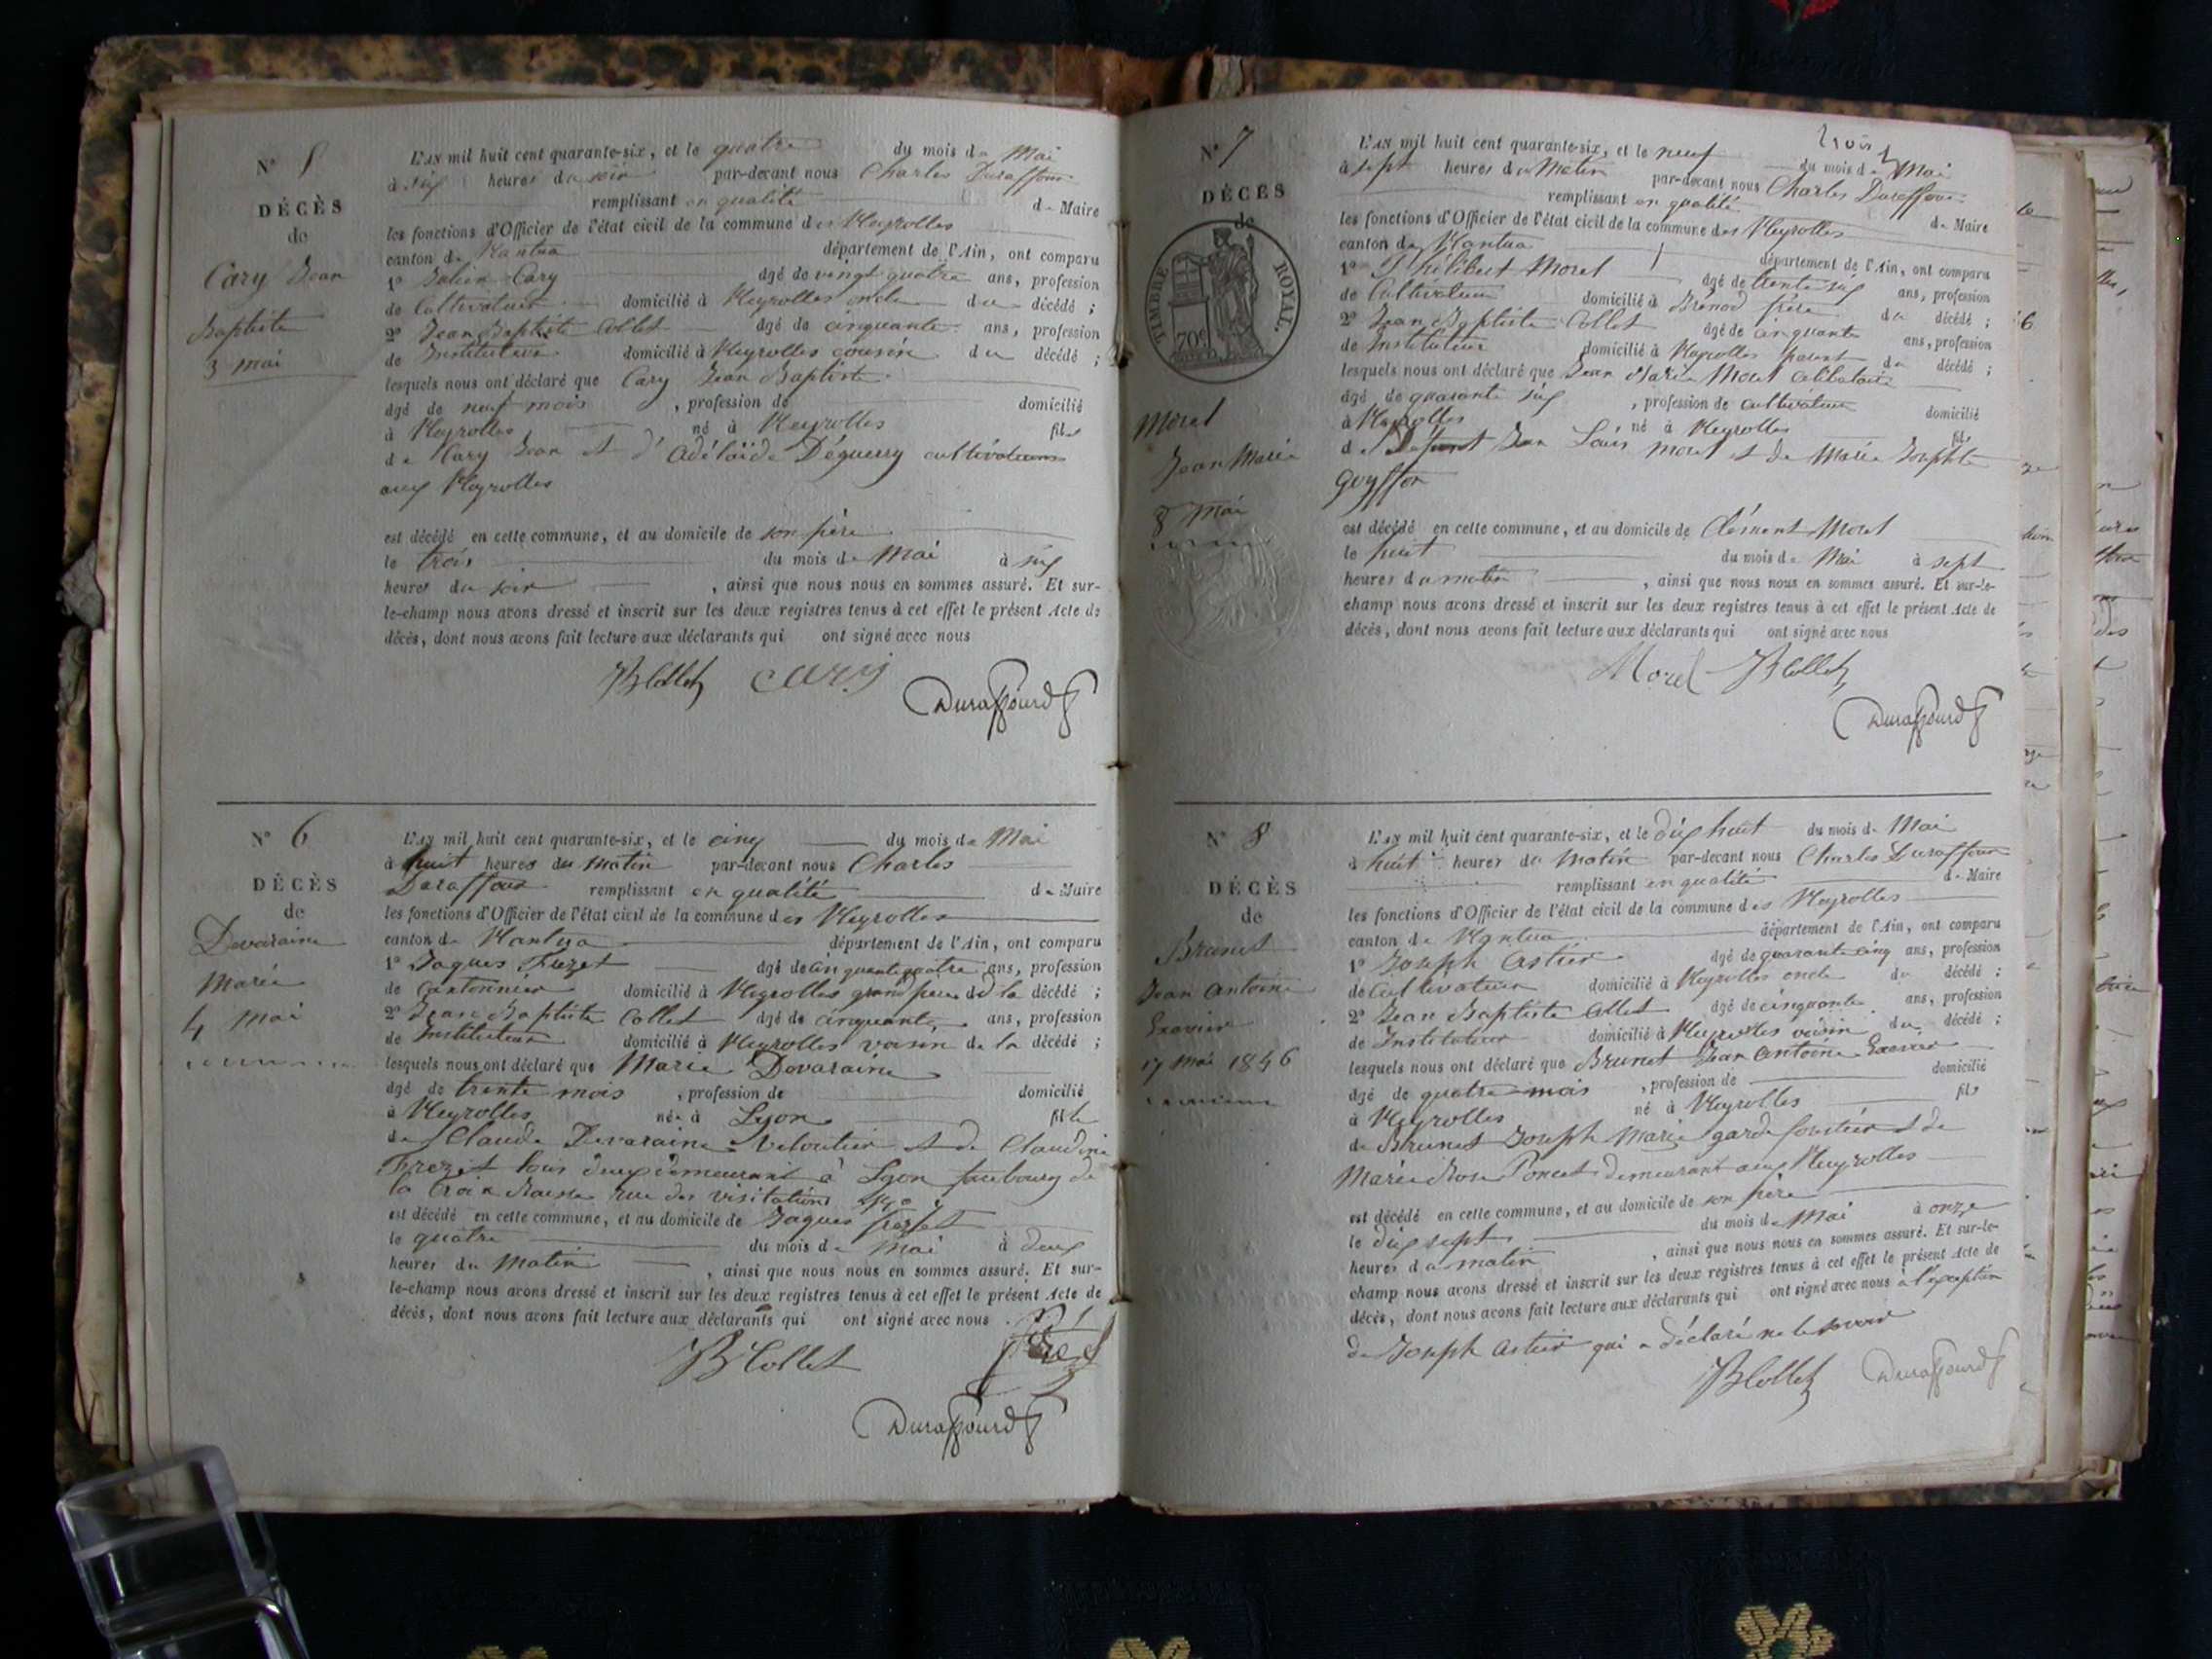 N° 5
DÉCÈS
de
Cary Jean
Baptiste
3 mai
L'AN mil huit cent quarante-six, et le quatre du mois de Mai
à six heures du soir par-devant nous Charles Duraffour
remplissant en qualité de Maire
les fonctions d'Officier de l'état civil de la commune des Neyrolles
canton de Nantua département de l'Ain, ont comparu
1° Julien Cary âgé de vingt quatre ans, profession
de Cultivateur domicilié à Neyrolles oncle du décédé ;
2° Jean Baptiste Collet âgé de cinquante ans, profession
de Instituteur domicilié à Neyrolles cousin du décédé ;
lesquels nous ont déclaré que Cary Jean Baptiste
âgé de neuf mois , profession de domicilié
à Neyrolles né à Neyrolles fils
de Cary Jean et d'Adélaïde Déguerry cultivateurs
aux Neyrolles
est décédé en cette commune, et au domicile de son père
le trois du mois de Mai à six
heures du soir , ainsi que nous nous en sommes assuré. Et sur-
le-champ nous avons dressé et inscrit sur les deux registres tenus à cet effet le présent Acte de
décès, dont nous avons fait lecture aux déclarants qui ont signé avec nous
JBCollet Cary
Duraffourd
N° 6
DÉCÈS
de
Devaraine
Marie
4 mai
L'AN mil huit cent quarante-six, et le cinq du mois de Mai
à huit heures du matin par-devant nous Charles
Duraffour remplissant en qualité de Maire
les fonctions d'Officier de l'état civil de la commune des Neyrolles
canton de Nantua département de l'Ain, ont comparu
1° Jaques Frezet âgé de cinquante quatre ans, profession
de Cantonnier domicilié à Neyrolles grand père de la décédé ;
2° Jean Baptiste Collet âgé de cinquante ans, profession
de Instituteur domicilié à Neyrolles voisin de la décédé ;
lesquels nous ont déclaré que Marie Devaraine
âgé de trente mois , profession de domicilié
à Neyrolles née à Lyon fille
de Claude Devaraine Veloutier et de Claudine
Frezet tous deux demeurant à Lyon faubourg de
la Croix Rousse rue des visitations
est décédé en cette commune, et au domicile de Jaques Frezet
le quatre du mois de Mai à deux
heures du Matin , ainsi que nous nous en sommes assuré. Et sur-
le-champ nous avons dressé et inscrit sur les deux registres tenus à cet effet le présent Acte de
décès, dont nous avons fait lecture aux déclarants qui ont signé avec nous
JBCollet
Duraffourd
N° 7
DÉCÈS
de
TIMBRE ROYAL.
70c
Morel
Jean Marie
8 Mai
L'AN mil huit cent quarante-six, et le neuf du mois de Mai
à sept heures du Matin par-devant nous Charles Duraffour
remplissant en qualité de Maire
les fonctions d'Officier de l'état civil de la commune des Neyrolles
canton de Nantua département de l'Ain, ont comparu
1° Philibert Morel âgé de trente six ans, profession
de Cultivateur domicilié à Brénod frère du décédé ;
2° Jean Baptiste Collet âgé de cinquante ans, profession
de Instituteur domicilié à Neyrolles parent du décédé ;
lesquels nous ont déclaré que Jean Marie Morel célibataire
âgé de quarante six , profession de cultivateur domicilié
à Neyrolles né à Neyrolles fils
de Défunt Jean Louis Morel et de Marie Josephte
Goyffon
est décédé en cette commune, et au domicile de Clément Morel
le huit du mois de Mai à sept
heures du matin , ainsi que nous nous en sommes assuré. Et sur-le-
champ nous avons dressé et inscrit sur les deux registres tenus à cet effet le présent Acte de
décès, dont nous avons fait lecture aux déclarants qui ont signé avec nous
Morel JBCollet
Duraffourd
N° 8
DÉCÈS
de
Brunet
Jean Antoine
Exavier
17 mai 1846
L'AN mil huit cent quarante-six, et le dix huit du mois de Mai
à huit heures du Matin par-devant nous Charles Duraffour
remplissant en qualité de Maire
les fonctions d'Officier de l'état civil de la commune des Neyrolles
canton de Nantua département de l'Ain, ont comparu
1° Joseph Astier âgé de quarante cinq ans, profession
de Cultivateur domicilié à Neyrolles oncle du décédé ;
2° Jean Baptiste Collet âgé de cinquante ans, profession
de Instituteur domicilié à Neyrolles voisin du décédé ;
lesquels nous ont déclaré que Brunet Jean Antoine Exavier
âgé de quatre mois , profession de domicilié
à Neyrolles né à Neyrolles fils
de Brunet Joseph Marie garde forestier et de
Marie Rose Poncet demeurant aux Neyrolles
est décédé en cette commune, et au domicile de son père
le dix sept du mois de Mai à onze
heures du matin , ainsi que nous nous en sommes assuré. Et sur-le-
champ nous avons dressé et inscrit sur les deux registres tenus à cet effet le présent Acte de
décès, dont nous avons fait lecture aux déclarants qui ont signé avec nous à l'exception
de Joseph Astier qui a déclaré ne le savoir
JBCollet Duraffourd